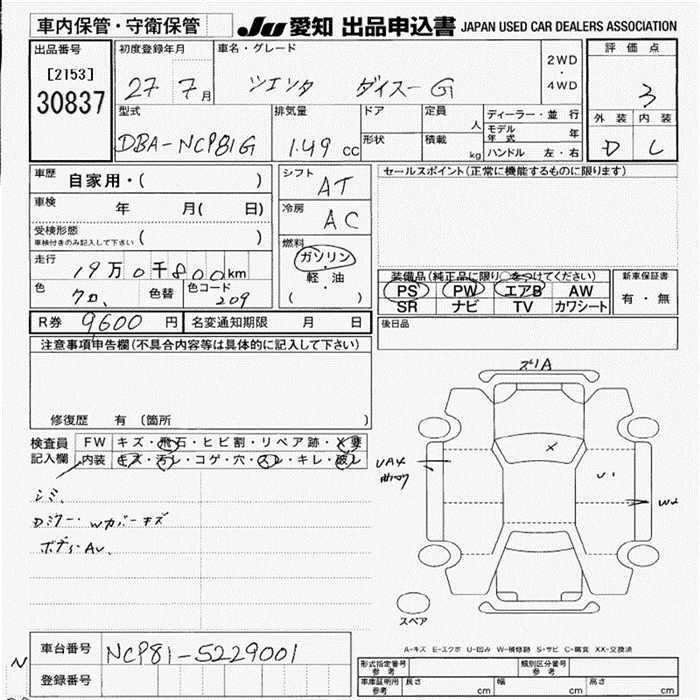 車内保管・守衛保管 JU 愛知 出品申込書 JAPAN USED CAR DEALERS ASSOCIATION
出品番号 初度登録年月 車名・グレード 評価点
[2153] 27 7月 シエンタ ダイスーG 2WD・4WD 3
30837
型式 排気量 ドア 定員 人 ディーラー・並行 外装 内装
DBA-NCP81G 1.49 cc 形状 積載 kg モデル年式 年 D C
ハンドル 左・右
車歴 自家用・( ) シフト AT セールスポイント(正常に機能するものに限ります)
車検 年 月( 日) 冷房 AC
受検形態 車検付きのみ記入して下さい ( )
燃料 ガソリン・軽・油 ( )
走行 19万0千800km 装備品(純正品に限り○をつけてください) 新車保証書
色 クロ 色替 色コード 209 PS PW エアB AW 有・無
SR ナビ TV カワシート
R券 9600円 名変通知期限 月 日 後日品
注意事項申告欄(不具合内容等は具体的に記入して下さい)
修復歴 有 (箇所 )
検査員記入欄 FW キズ・飛石・ヒビ割・リペア跡・X要
内装 キズ・汚レ・コゲ・穴・スレ・キレ・破レ
シミ
Dミラー・Wカバーキズ
ボディAU
ズリA
X
UA4
U1
スペア
A-キズ E-エクボ U-凹み W-補修跡 S-サビ C-腐食 XX-交換済
車台番号 NCP81-5229001
N 登録番号
形式指定番号 参考 類別区分番号 参考
車庫証明用 参考 長さ cm 幅 cm 高さ cm